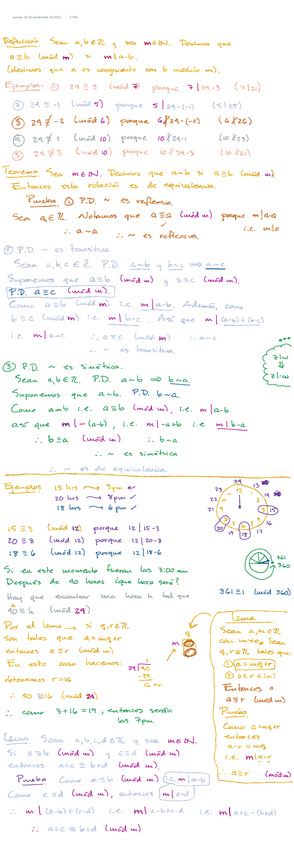 jueves, 25 de noviembre de 2021 17:06
Definición: Sean a,b∈ℤ y sea m∈ℕ. Decimos que
a≡b (mód m) si m|a-b.
(decimos que a es congruente con b módulo m).
Ejemplos: ① 29≡8 (mód 7) porque 7|29-8 (7|21)
② 29≡-1 (mód 5) porque 5|29-(-1) (5|25)
③ 29≢-2 (mód 6) porque 6∤29-(-2) (6∤26)
④ 29≢1 (mód 10) porque 10∤29-1 (10∤23)
⑤ 29≢3 (mód 10) porque 10∤29-3 (10∤21)
Teorema: Sea m∈ℕ. Decimos que a~b si a≡b (mód m)
Entonces esta relación es de equivalencia.
Prueba: ① P.D. ~ es reflexiva.
Sea a∈ℤ. Notamos que a≡a (mód m) porque m|a-a
∴ a~a i.e. m|0
∴ ~ es reflexiva
② P.D. ~ es transitiva
Sean a,b,c∈ℤ P.D. a~b y b~c ⇒ a~c
Supongamos que a≡b (mód m) y b≡c (mód m).
P.D. a≡c (mód m).
Como a≡b (mód m) i.e. m|a-b. Además, como
b≡c (mód m) i.e. m|b-c. Así que m|(a-b)+(b-c)
i.e. m|a-c ∴ a≡c (mód m) ∴ a~c
∴ ~ es transitiva
③ P.D. ~ es simétrica.
Sean a,b∈ℤ. P.D. a~b ⇒ b~a
Suponemos que a~b. P.D. b~a
Como a~b i.e. a≡b (mód m), i.e. m|a-b
así que m|-(a-b), i.e. m|-a+b i.e. m|b-a
∴ b≡a (mód m) ∴ b~a
∴ ~ es simétrica
∴ ~ es de equivalencia.
Ejemplos 15 hrs → 3 pm ✓
20 hrs → 8 pm ✓
18 hrs → 6 pm ✓
15≡3 (mód 12) porque 12|15-3
20≡8 (mód 12) porque 12|20-8
18≡6 (mód 12) porque 12|18-6
361
360
361≡1 (mód 360)
Si en este momento fueran las 3:00 am
Después de 40 horas ¿que hora será?
Hay que encontrar una hora h tal que
40≡h (mód 24)
Por el lema si q,r∈ℤ
son tales que a=mq+r
entonces a≡r (mód m)
En este caso hacemos:
obtenemos r=16
∴ 40≡16 (mód 24)
∴ como 3+16=19, entonces serán
las 7pm.
Lema
Sean a,m∈ℤ
q,r∈ℤ tales que:
① a=mq+r
Entonces
a≡r (mód m)
Prueba:
Como a=mq+r
entonces
a-r=mq
i.e. m|a-r
∴ a≡r (mód m)
Lema Sean a,b,c,d∈ℤ y sea m∈ℕ.
Si a≡b (mód m) y c≡d (mód m)
entonces a+c≡b+d (mód m).
Prueba Como a≡b (mód m) i.e. m|a-b
Como c≡d (mód m), entonces m|c-d
∴ m|(a-b)+(c-d) i.e. m|a-b+c-d i.e. m|a+c-(b+d)
∴ a+c≡b+d (mód m)